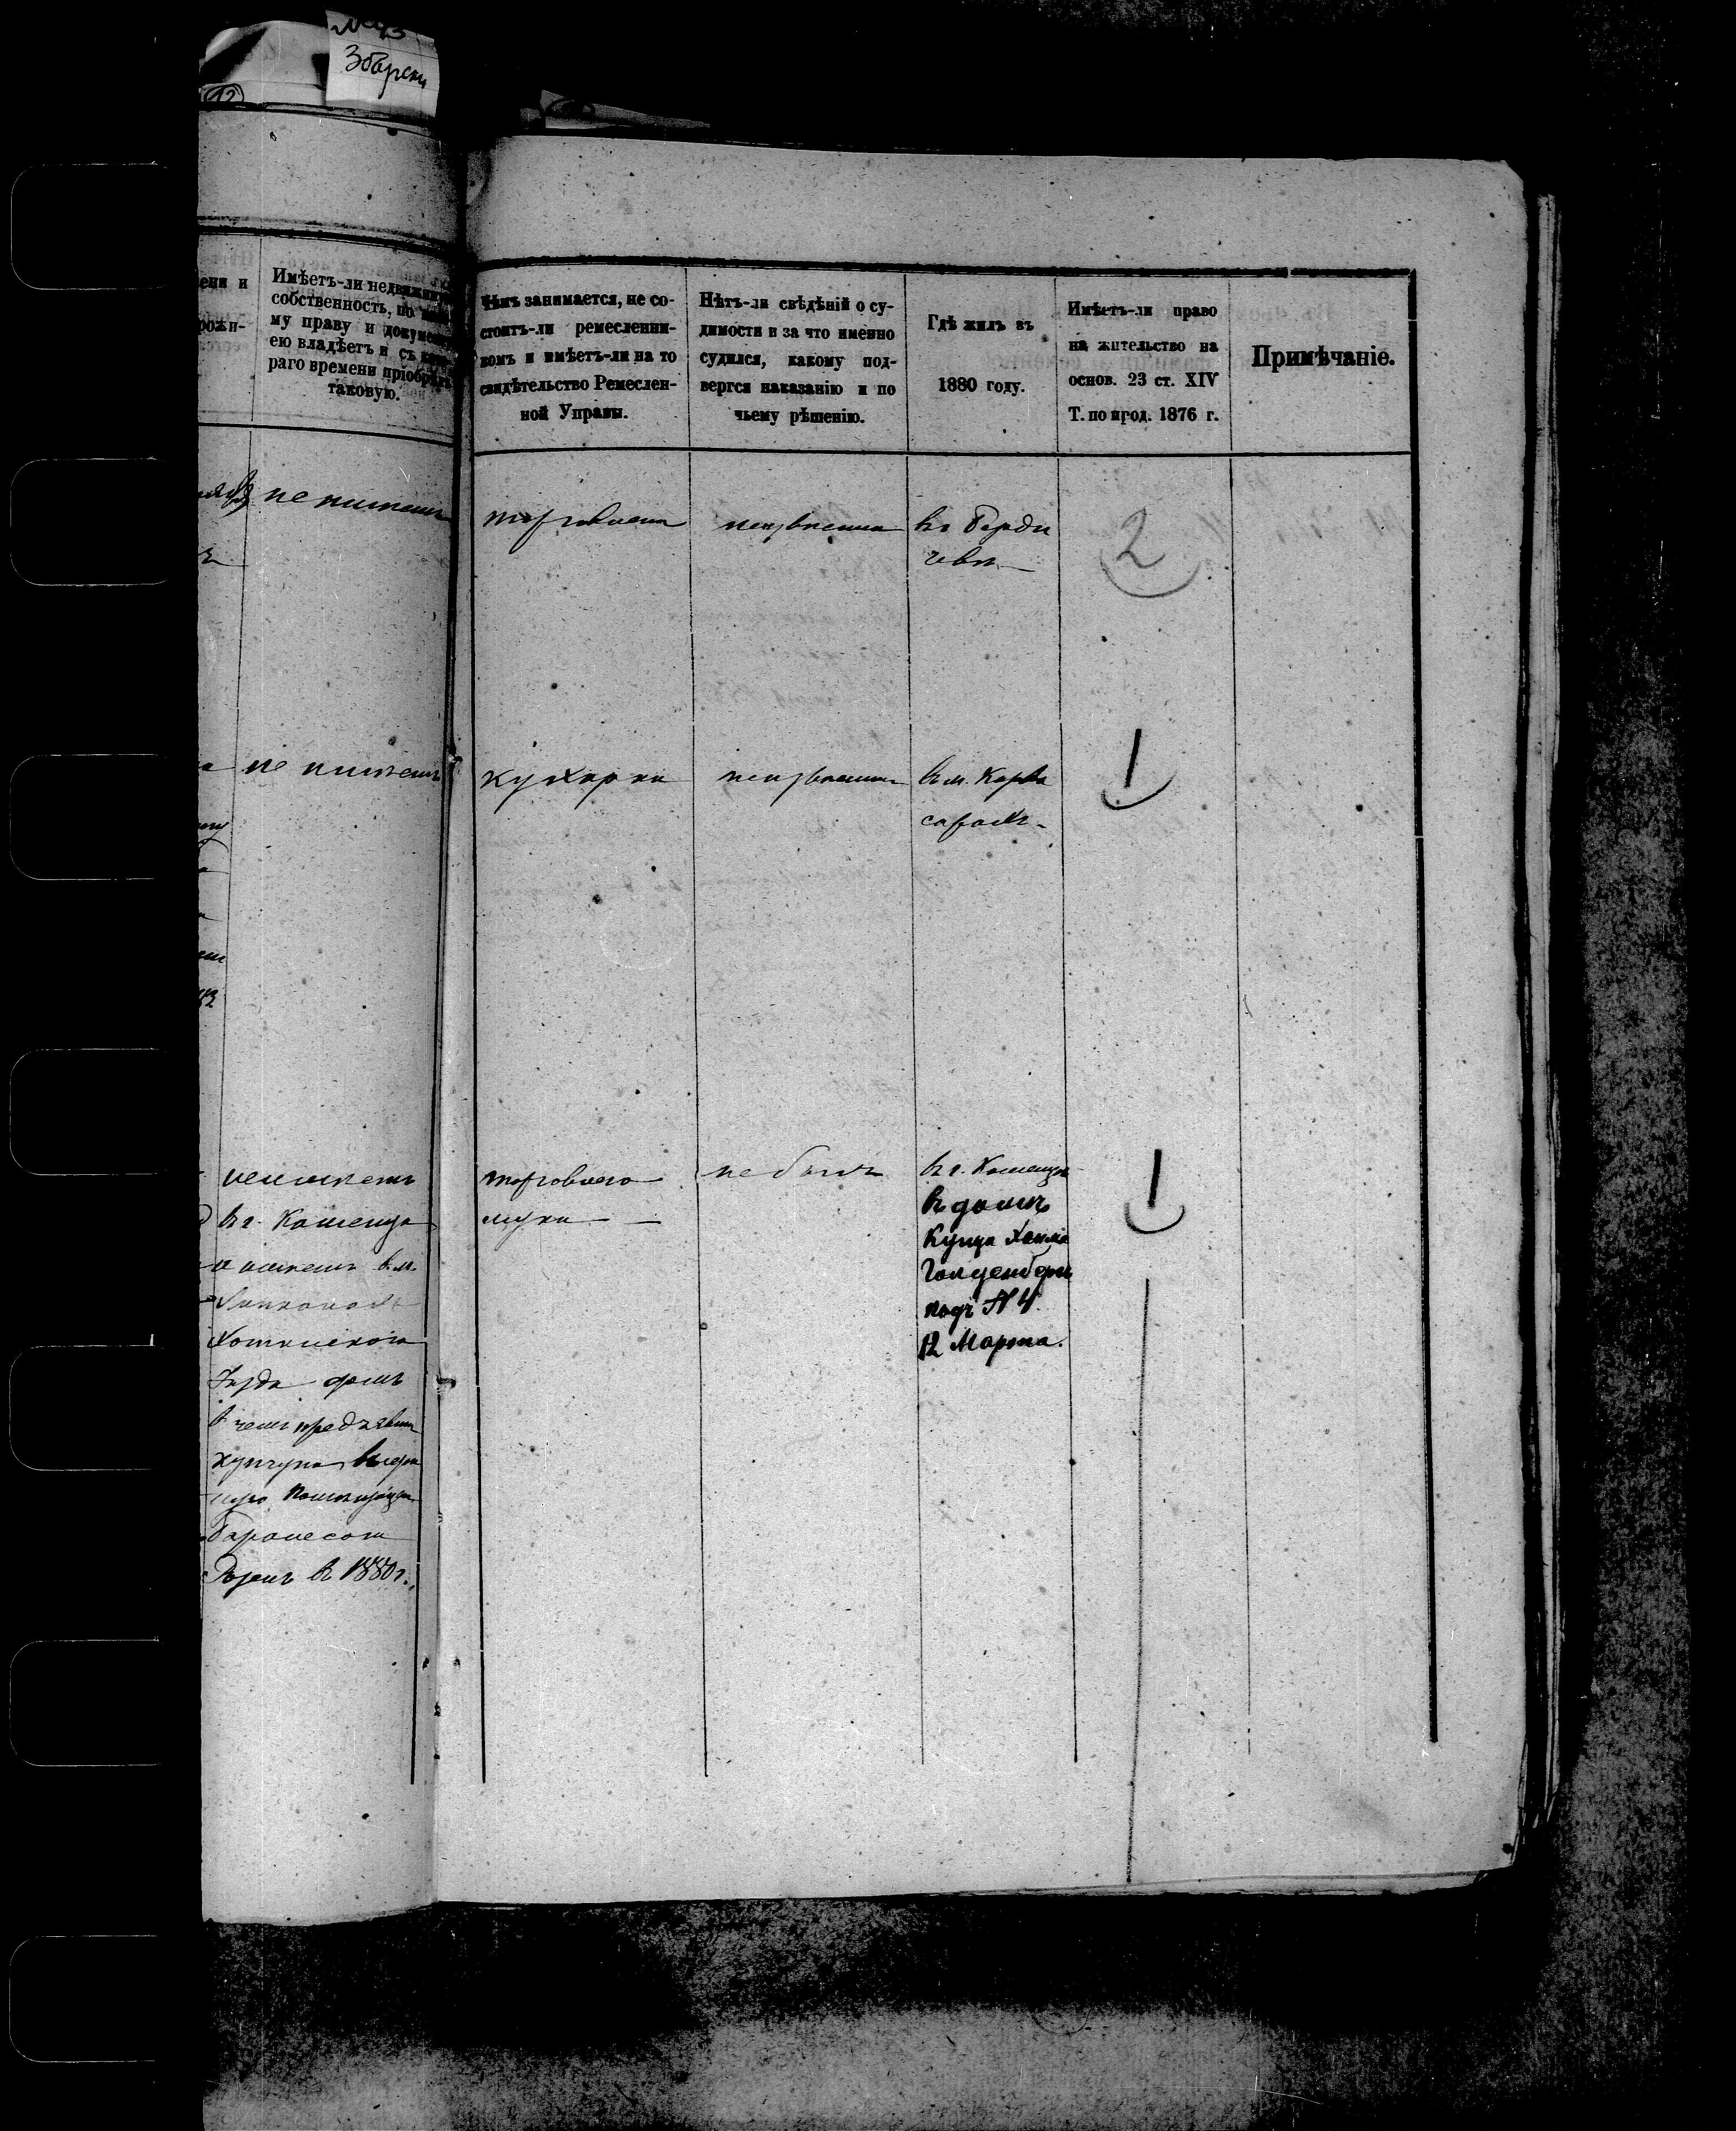 Збарски
12
ени и
рожи-
Имѣетъ-ли
собственность, по
му праву и
ею владѣетъ и съ
раго времени
таковую.
Чѣмъ занимается, не со-
стоитъ-ли ремесленни-
комъ и имѣетъ-ли на то
свидѣтельство Ремеслен-
ной Управы.
Нѣтъ-ли свѣдѣній о су-
димости и за что именно
судился, какому под-
вергся наказанію и по
чьему рѣшенію.
Гдѣ жилъ въ
1880 году.
Имѣетъ-ли право
на жительство на
основ. 23 ст. XIV
Т. по прод. 1876 г.
Примѣчаніе.
не имѣетъ
торговлею
неизвѣстно
въ Берди
чевѣ
2
не имѣетъ
кухарка
неизвѣстно
въ м.
1
неимѣетъ
въ г. Каменцѣ
а имѣетъ в. м.
Хотинскаго
домъ
в чемъ предъявилъ
Баронесою
Розенъ в 1880 г.
торговлею
муки
не былъ
въ г. Каменцѣ
въ домѣ
Купца Хаима
Голденберг
подъ № 4.
12 Марта.
1